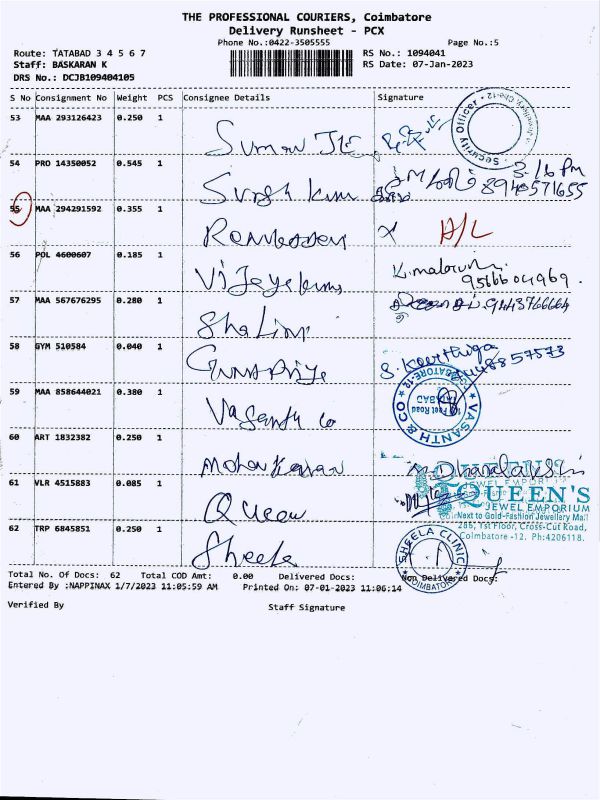 THE PROFESSIONAL COURIERS, Coimbatore
Delivery Runsheet - PCX
Phone No.:0422-3505555 Page No.:5
Route: TATABAD 3 4 5 6 7 RS No.: 1094041
Staff: BASKARAN K RS Date: 07-Jan-2023
DRS No.: DCJB109404105
S No Consignment No Weight PCS Consignee Details Signature
53 MAA 293126423 0.250 1
Suman
Security Officer
54 PRO 14350052 0.545 1
3.16 pm
Suresh kum 8940571655
55 MAA 294291592 0.355 1
X D/L
56 POL 4600607 0.185 1
Vijeyekum
9566604969.
57 MAA 567676295 0.280 1
9443766664
Shalini
58 GYM 510584 0.040 1
S. Keerthiga
59 MAA 858644021 0.380 1
VASANTH & CO
TATABAD
Vasanth co
60 ART 1832382 0.250 1
Mohan
61 VLR 4515883 0.085 1
QUEEN'S
JEWEL EMPORIUM
Next to Gold-Fashion Jewellery Mall
286, 1st Floor, Cross-Cut Road,
Coimbatore -12. Ph:4206118.
Queen
62 TRP 6845851 0.250 1
SHEELA CLINIC
COIMBATORE
Sheela
Total No. Of Docs: 62 Total COD Amt: 0.00 Delivered Docs: Non Delivered Docs:
Entered By :NAPPINAX 1/7/2023 11:05:59 AM Printed On: 07-01-2023 11:06:14
Verified By Staff Signature